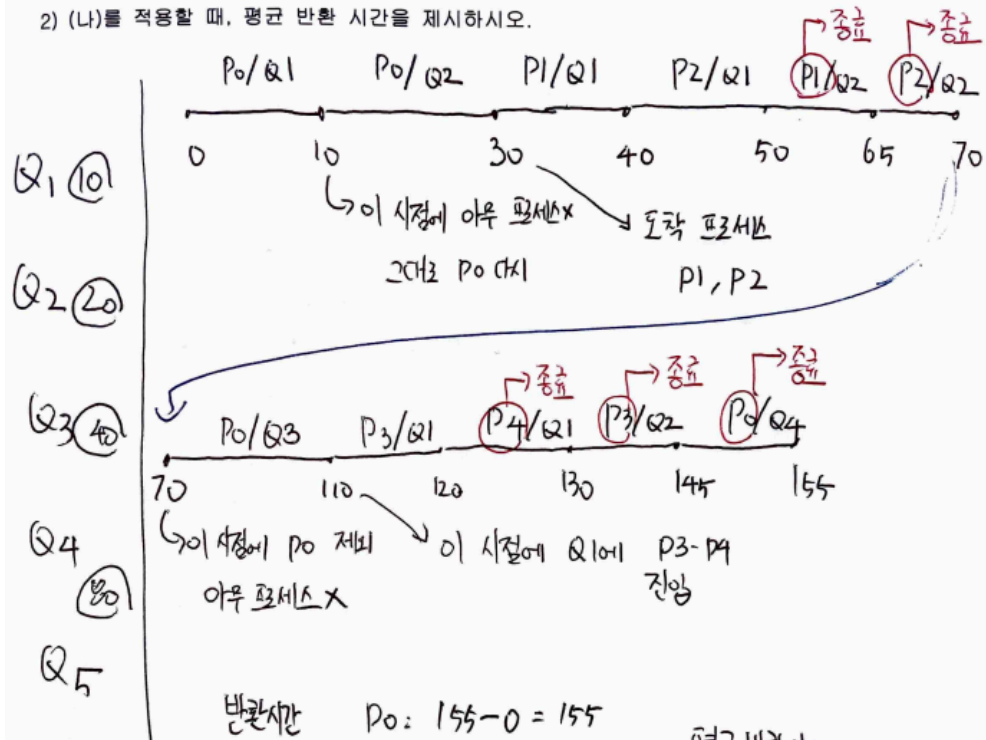 2) (나)를 적용할 때, 평균 반환 시간을 제시하시오.
→종료 →종료
P0/Q1 P0/Q2 P1/Q1 P2/Q1 P1/Q2 P2/Q2
0 10 30 40 50 65 70
Q1 10
이 시점에 아무 프로세스x
그대로 P0 다시
도착 프로세스
P1, P2
Q2 20
→종료 →종료 →종료
Q3 40
P0/Q3 P3/Q1 P4/Q1 P3/Q2 P0/Q4
70 110 120 130 145 155
Q4 80
이 시점에 P0 제외
아무 프로세스 X
이 시점에 Q1에 P3-P4
진입
Q5
반환시간 P0: 155-0 = 155